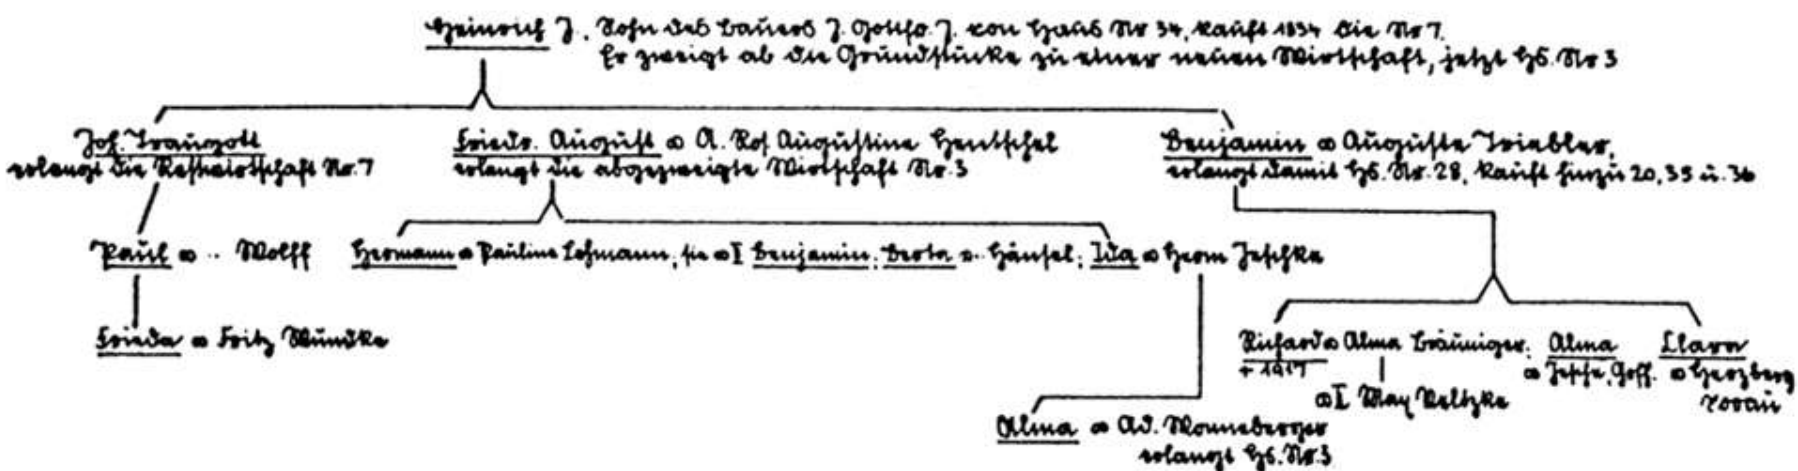 Heinrich J., Sohn des Bauers J. Gottfr. J. von Haus Nr 34, kauft 1834 die Nr 7.
Er zweigt ab die Grundstücke zu einer neuen Wirtschaft, jetzt Hs. Nr 3
Joh. Traugott
erlangt die Restwirtschaft Nr. 7
Friedr. August ∞ A. Ros Augustine Hentschel
erlangt die abgezweigte Wirtschaft Nr. 3
Benjamin ∞ Auguste Triebler,
erlangt damit Hs. Nr. 28, kauft hinzu 20, 35 u. 36
Paul ∞ .. Wolff
Hermann ∞ Pauline Lehmann, sie ∞ I Benjamin; Berta ∞ .. Hänsel; Ida ∞ Herm Jeschke
Frieda ∞ Fritz Mundke
Richard ∞ Alma Bräuniger; Alma Clara
+ 1917 ∞ Jesche, ∞ Herzberg
∞ I Max Sorau
Alma ∞ Ad. Wonneberger
erlangt Hs. Nr. 3